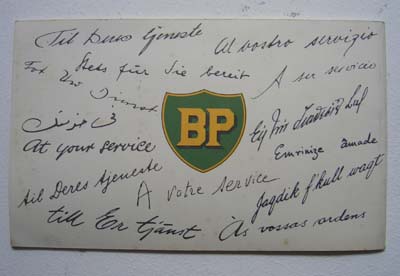 Til Deres tjeneste
Al vostro servizio
Stets für Sie bereit
Tot Uw Dienst
A su servicio
BP
At your service
Emrinize amade
til Deres tjeneste
A votre service
Jaqdik f'kull waqt
till Er tjänst
Às vossas ordens